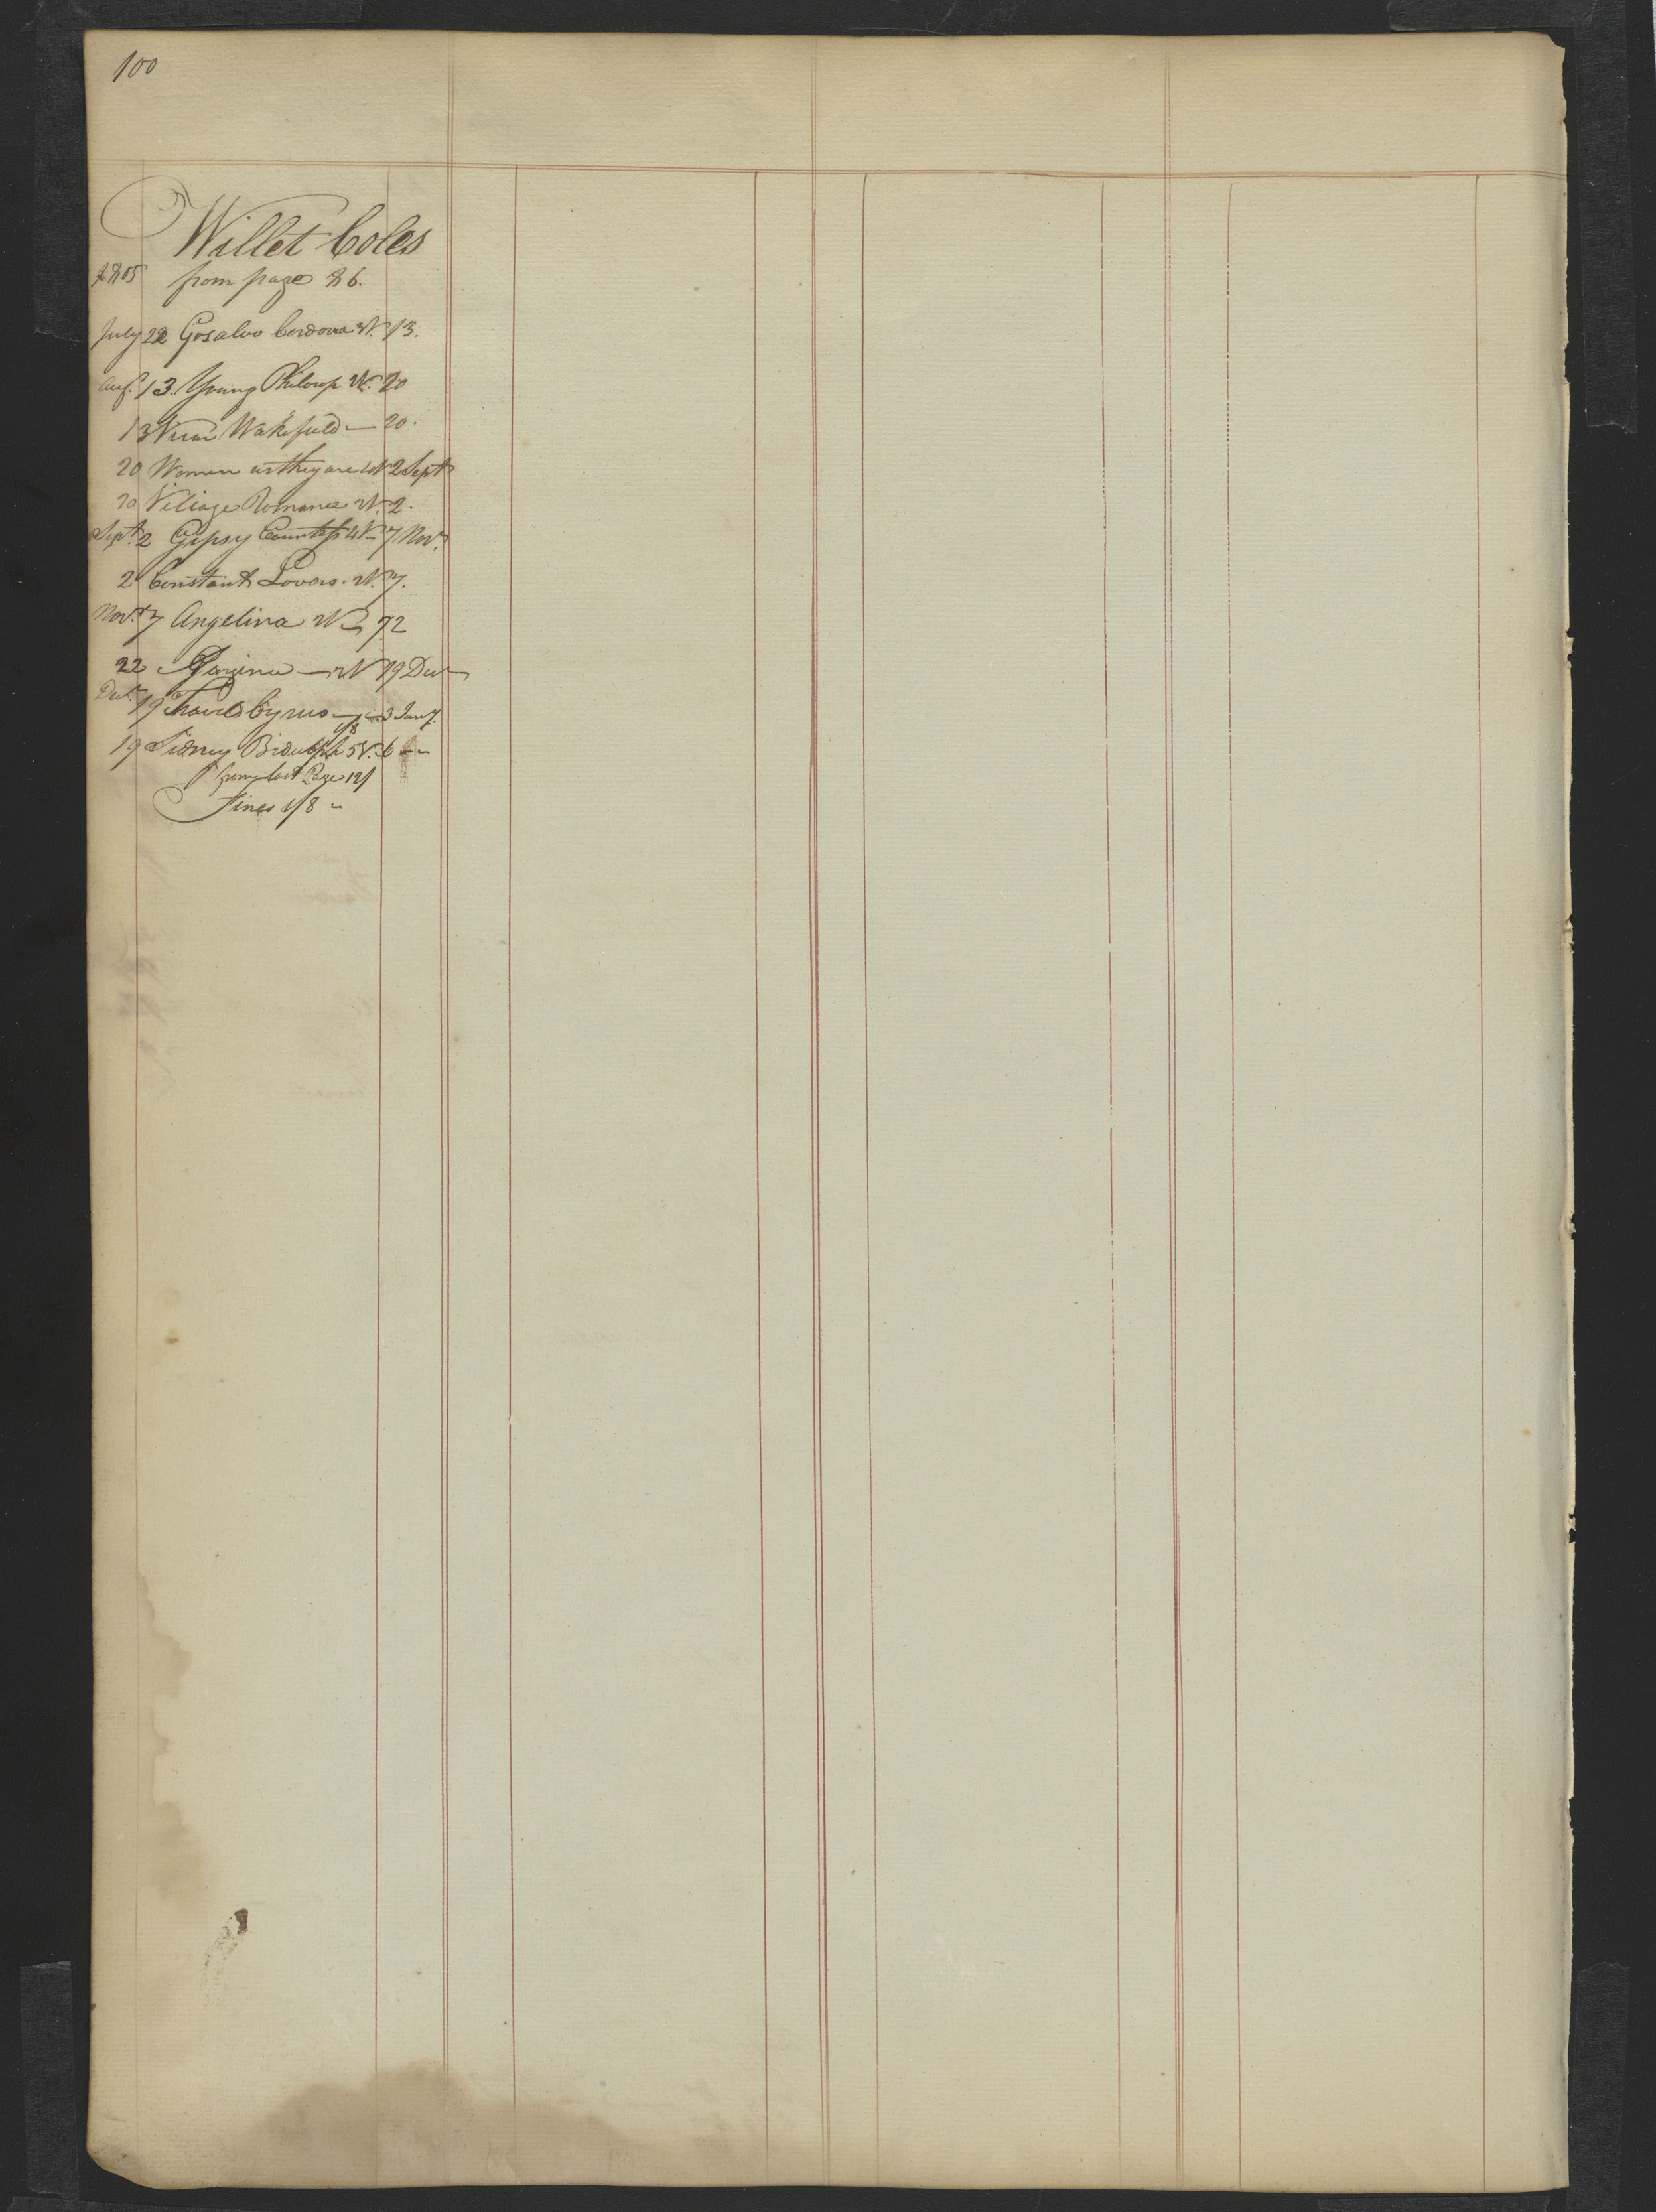 100
Willet Coles
1805 from page 86.
July 22 Gosalvo Cordova 3V. 13.
Aug. 13. Young Philosop. 2V. 20
13 Vicar Wakefield — 20.
20 Women as they are 4V 2 Sept
20 Village Romance 2V. 2.
Sept. 2 Gipsy Countess 4V. 7 Nov.
2 Constant Lovers. 2V. 7.
Novr. 7 Angelina 2V.
22 — 2V 19 Decr
Decr 19 Travels Cyrus — 3 Jany.
1/8
19 Sidney Bidulph 5V. 6 --
from last Page 12/
Fines 1/8